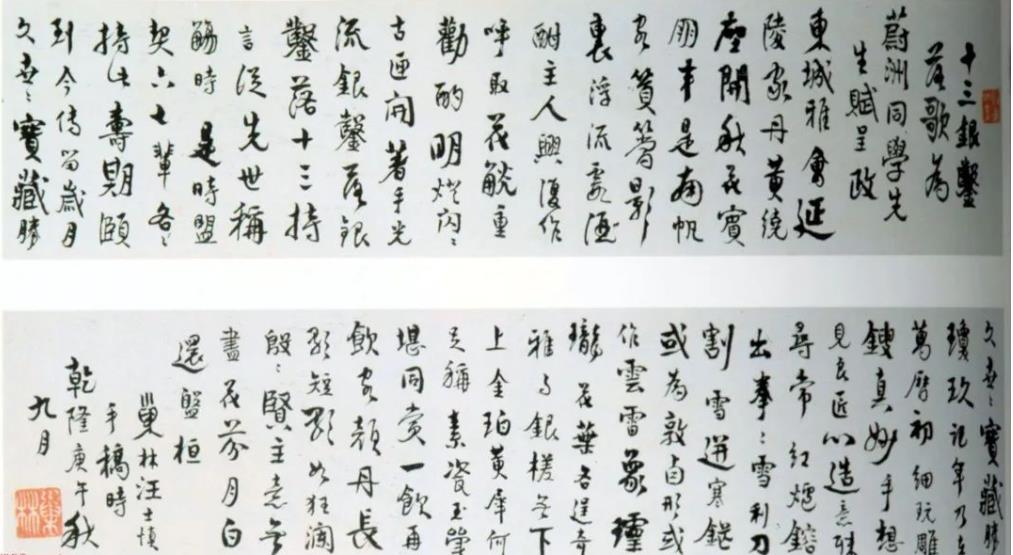 十三銀鑿
落歌為
蔚洲同學先
生賦呈政
東城雅會延
陵家丹黃繞
座開秋花賓
朋半是南帆
客篔簹影
裏浮流霞酒
酣主人興復作
呼取花觥重
勸酌明燈閃〻
古匣開著手光
流銀鑿落銀
鑿落十三持
言從先世稱
觴時是時盟
契六七輩各〻
持此壽期頤
到今傳留歲月
久世〻寶藏勝
久世〻寶藏勝
瓊玖記年乃在
萬曆初細玩雕
鎪真妙手想
見良匠心造意
尋常紅爐鎔
出拳〻雪利刀
割雪迸寒鋩
或為敦卣形或
作雲雷象
瓏花葉各逞奇
雅与銀槎無下
上金珀黃犀何
足稱素瓷玉斝
堪同賞一飲再
飲客顏丹長
歌短歌如狂瀾
殷〻賢主意無
盡花芬月白
還盤桓
巢林汪士慎
手稿時
乾隆庚午秋
九月
巢林